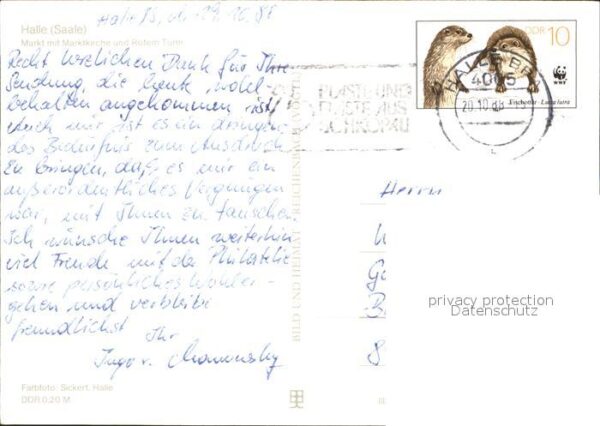 Halle/S, d. 19.10.88
Halle (Saale)
Markt mit Marktkirche und Rotem Turm
Recht herzlichen Dank für Ihre
Sendung, die heute wohl-
behalten angekommen ist!
Auch mir ist es ein dringen-
des Bedürfnis zum Ausdruck
zu bringen, daß es mir ein
außerordentliches Vergnügen
war, mit Ihnen zu tauschen.
Ich wünsche Ihnen weiterhin
viel Freude mit der Philatelie
sowie persönliches Wohler-
gehen und verbleibe
freundlichst
Ihr
Ingo v.
Farbfoto: Sickert, Halle
DDR 0,20 M
BILD UND HEIMAT REICHENBACH
PLASTE UND
AUS
SCHKOPAU
HALLE
4005
20.10.88
DDR 10
WWF
Fischotter · Lutra lutra
Herrn
G
B
S
privacy protection
Datenschutz